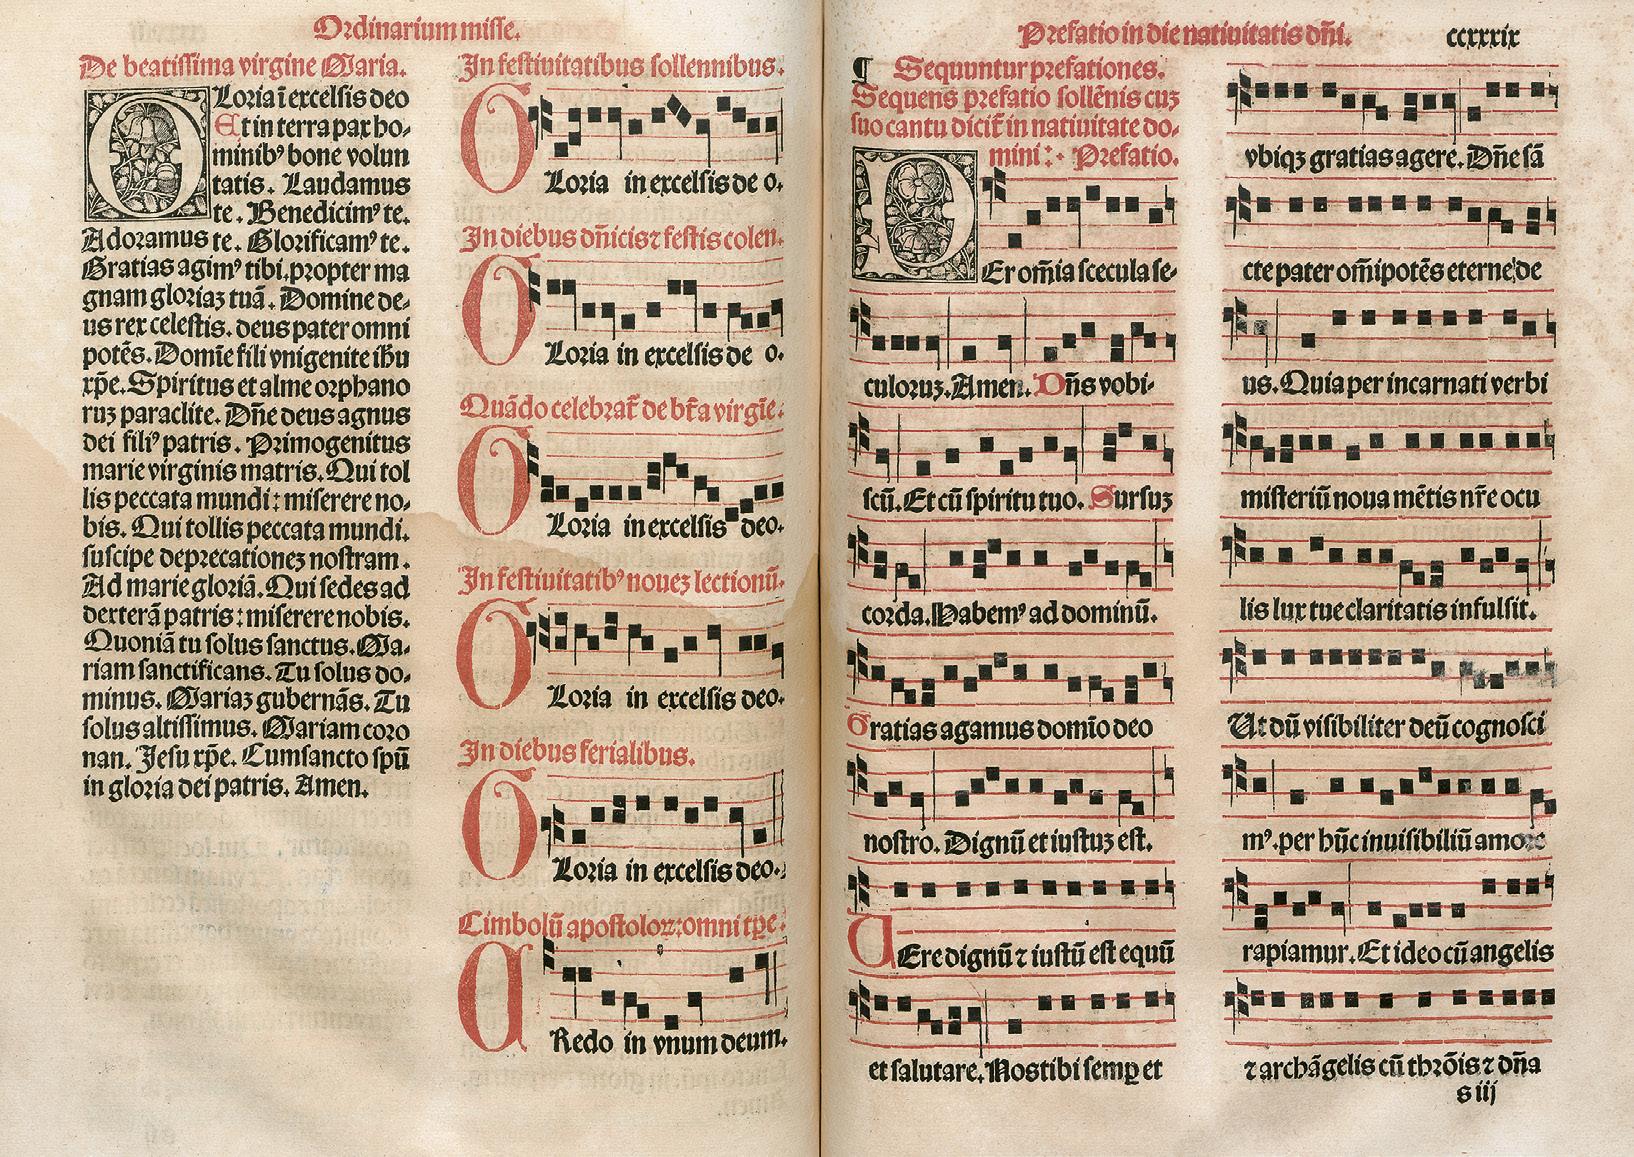 Ordinarium misse.
De beatissima virgine Maria.
GLoria ī excelsis deo
Et in terra pax ho-
minibꝰ bone volun
tatis. Laudamus
te. Benedicimꝰ te.
Adoramus te. Glorificamꝰ te.
Gratias agimꝰ tibi.propter ma
gnam gloriaꝫ tuã. Domine de-
us rex celestis. deus pater omni
potẽs. Domine fili vnigenite ihu
xp̄e. Spiritus et alme orphano
ruꝫ paraclite. Dñe deus agnus
dei filiꝰ patris. Primogenitus
marie virginis matris. Qui tol
lis peccata mundi: miserere no-
bis. Qui tollis peccata mundi.
suscipe deprecationeꝫ nostram.
Ad marie gloriã. Qui sedes ad
dexterã patris: miserere nobis.
Quoniã tu solus sanctus. Ma-
riam sanctificans. Tu solus do-
minus. Mariaꝫ gubernãs. Tu
solus altissimus. Mariam coro
nan. Jesu xp̄e. Cum sancto spũ
in gloria dei patris. Amen.
In festiuitatibus sollennibus.
GLoria in excelsis de o.
In diebus dñicis ⁊ festis colen.
GLoria in excelsis de o.
Quãdo celebrat̃ de bt̃a virgĩe.
GLoria in excelsis deo.
In festiuitatibꝰ noueꝫ lectionũ.
GLoria in excelsis deo.
In diebus ferialibus.
GLoria in excelsis deo.
Cimbolũ apostoloꝝ: omni tp̄e.
CRedo in vnum deum.
Prefatio in die natiuitatis dñi.
ccxxxix
¶ Sequuntur prefationes.
Sequens prefatio sollẽnis cuꝫ
suo cantu dicit̃ in natiuitate do-
mini: Prefatio.
PEr om̃ia secula se-
culoruꝫ. Amen. Dñs vobi-
scũ. Et cũ spiritu tuo. Sursuꝫ
corda. Habemꝰ ad dominũ.
Gratias agamus domĩo deo
nostro. Dignũ et iustuꝫ est.
VEre dignũ ⁊ iustũ est equũ
et salutare. Nos tibi semꝑ et
vbiqꝫ gratias agere. Dñe sã
cte pater om̃ipotẽs eterne de
us. Quia per incarnati verbi
misteriũ noua mẽtis nr̃e ocu
lis lux tue claritatis infulsit.
Ut dũ visibiliter deũ cognosci
mꝰ. per hũc inuisibiliũ amore
rapiamur. Et ideo cũ angelis
⁊ archãgelis cũ thrõis ⁊ dña
s iij